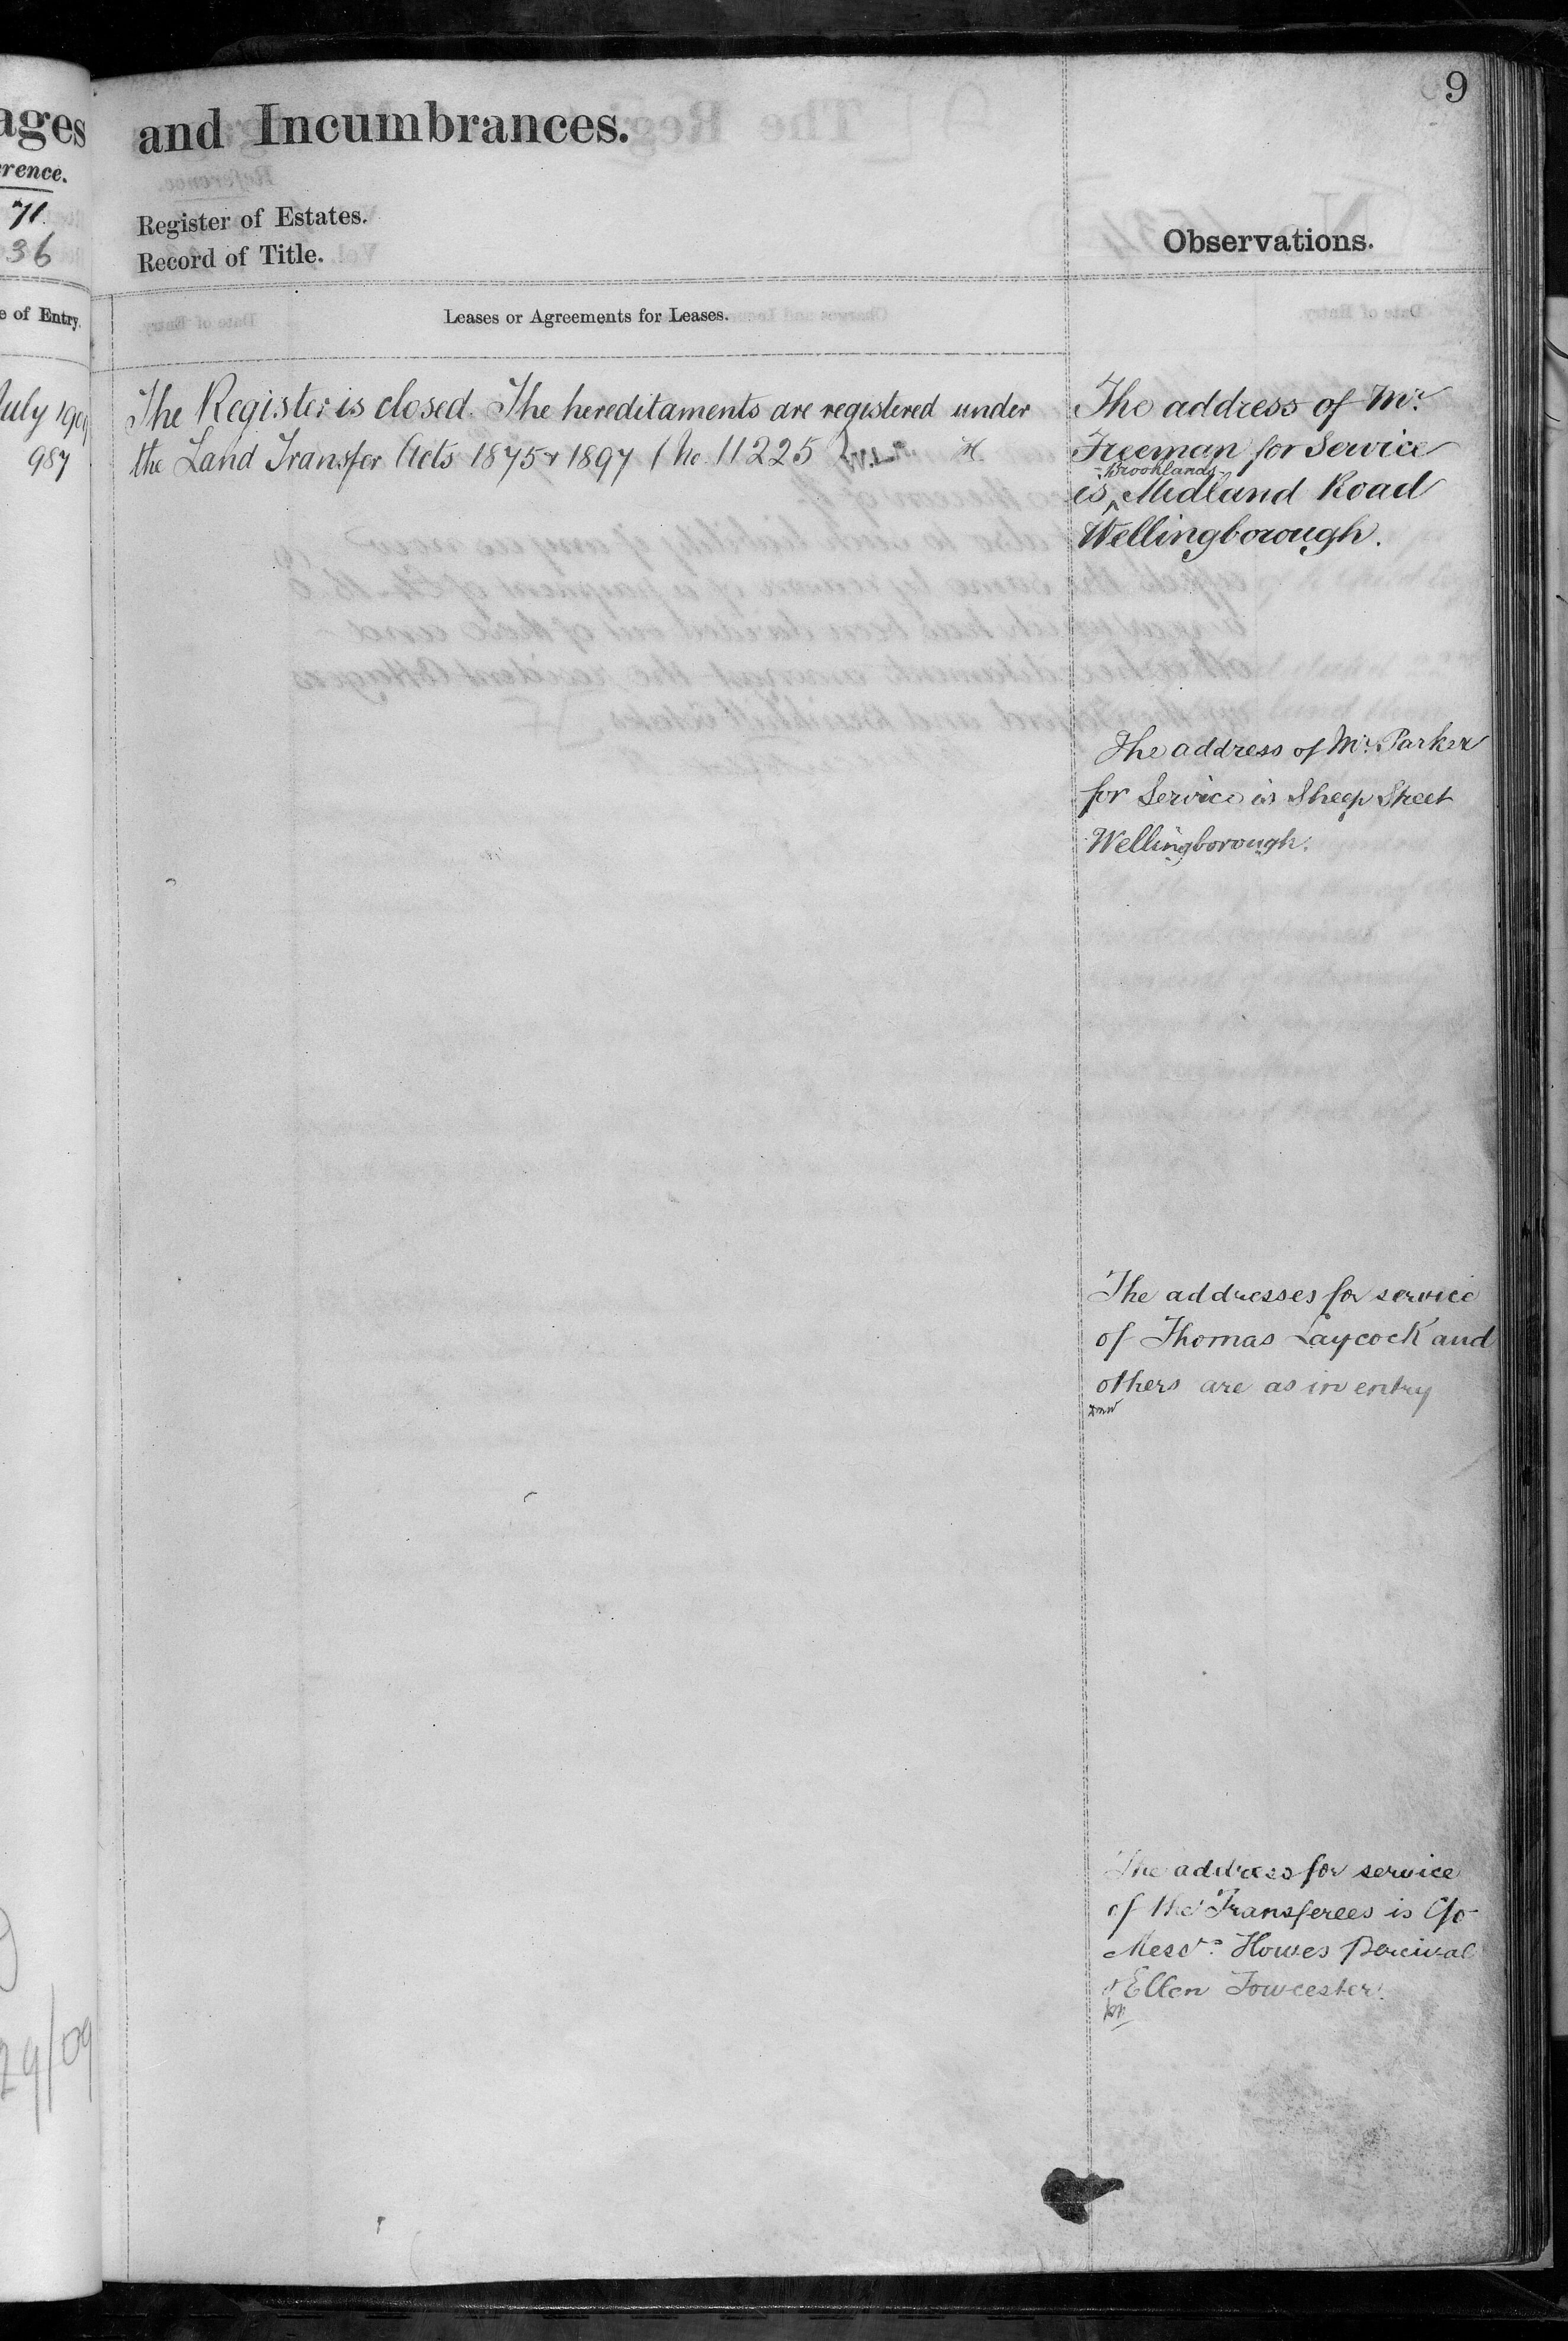 ages
and Incumbrances.
9
erence.
71.
36
Register of Estates.
Record of Title.
Observations.
e of Entry.
Leases or Agreements for Leases.
July 1909
987
The Register is closed. The hereditaments are registered under
the Land Transfer Acts 1875 & 1897 (No. 11225)
The address of Mr.
Freeman for Service
Brooklands
is Midland Road
Wellingborough.
The address of Mr. Parker
for Service is Sheep Street
Wellingborough.
The addresses for service
of Thomas Laycock and
others are as in entry
The address for service
of the Transferees is C/o
Messrs. Howes Percival
& Ellen Towcester.
29/09